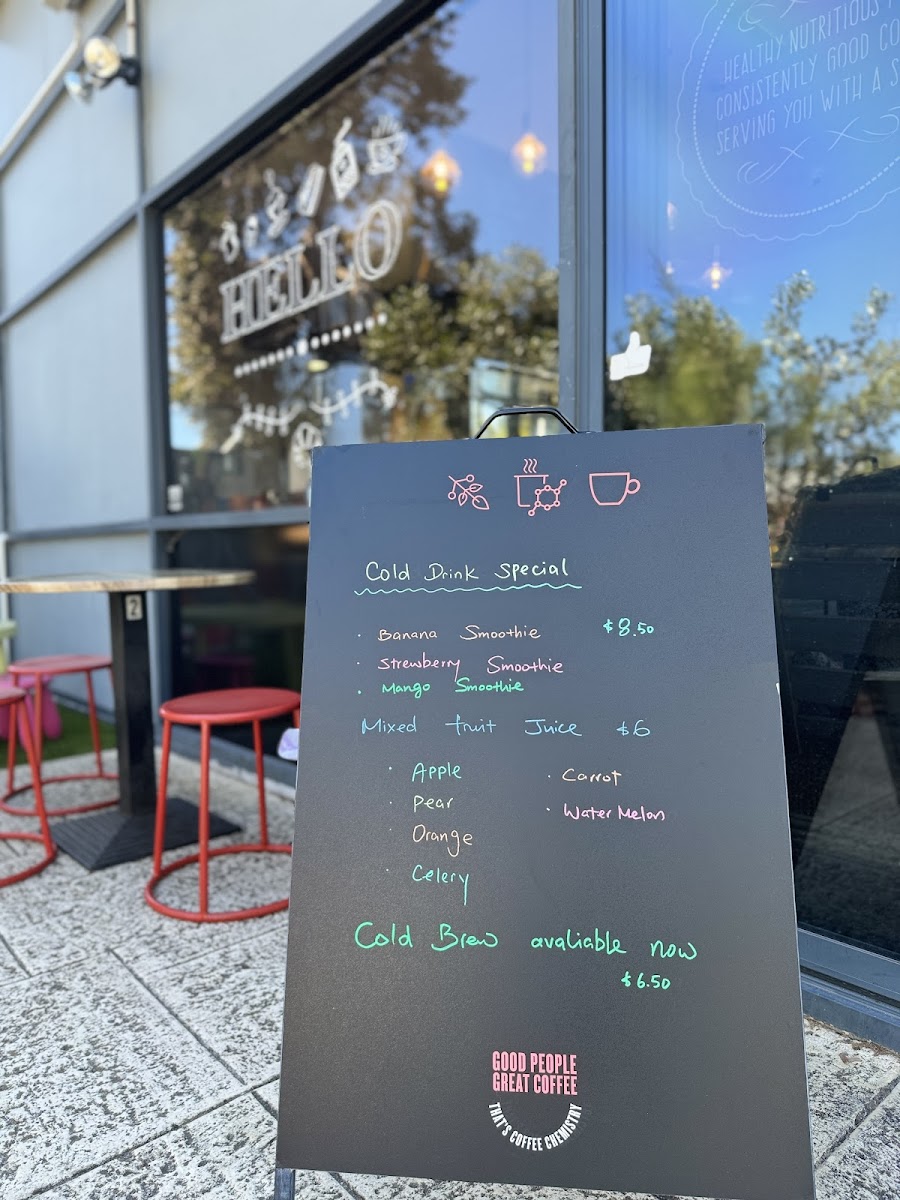 HELLO
HEALTHY NUTRITIOUS
CONSISTENTLY GOOD
SERVING YOU WITH A
2
Cold Drink Special
· Banana Smoothie $8.50
· Strewberry Smoothie
· Mango Smoothie
Mixed fruit Juice $6
· Apple · Carrot
· Pear · Water Melon
· Orange
· Celery
Cold Brew avaliable now
$6.50
GOOD PEOPLE
GREAT COFFEE
THAT'S COFFEE CHEMISTRY